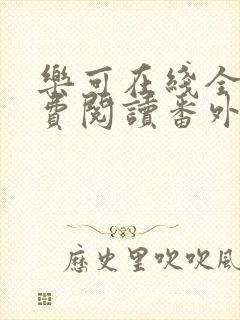 樂可在綫全
費閱讀番外
歷史里吹吹風